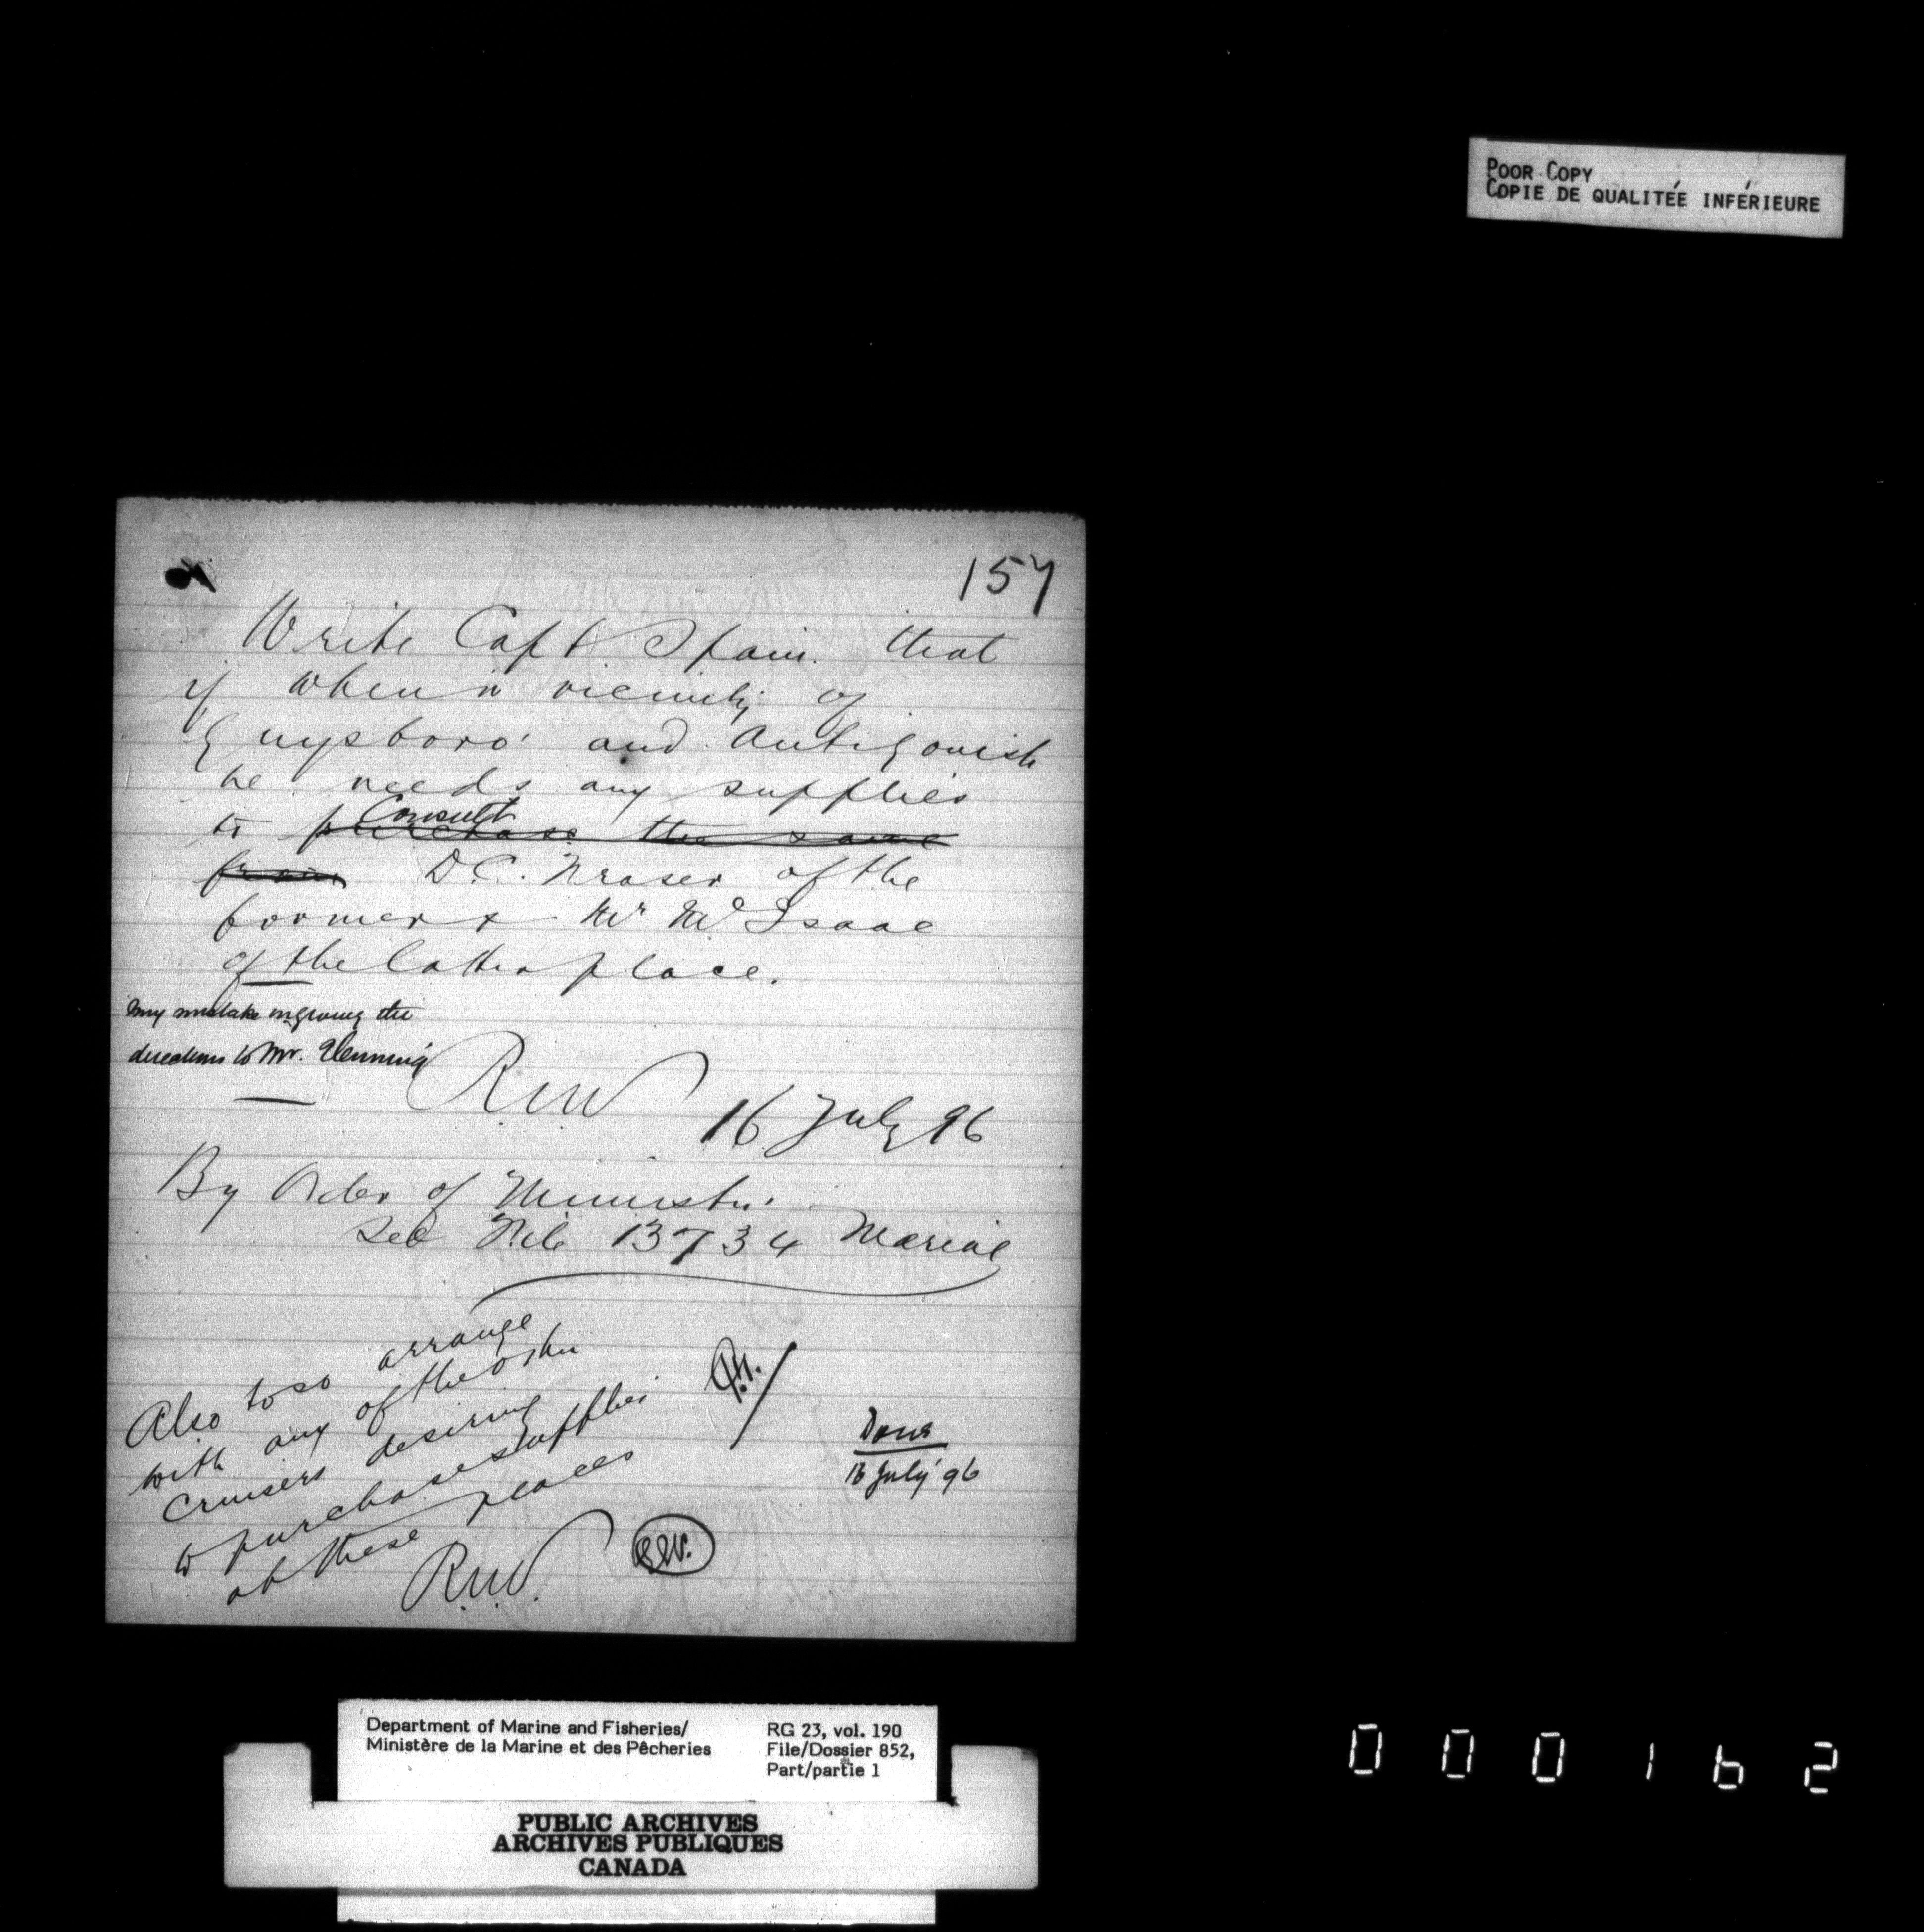 POOR COPY
COPIE DE QUALITÉE INFÉRIEURE
157
Write Capt Spain that
if when in vicinity of
Guysboro' and Antigonish
he needs any supplies
Consult
to purchase the same
from D.C. Fraser of the
former & Mr McIsaac
of the latter place.
My mistake in giving the
directions to Mr.
R.W
16 July 96
By Order of Minister.
See File 13734 Marine
Also to so arrange
with any of the other
Cruisers desiring
to purchase supplies
at these places
R.W.
Done
16 July '96
Department of Marine and Fisheries/
Ministère de la Marine et des Pêcheries
RG 23, vol. 190
File/Dossier 852,
Part/partie 1
PUBLIC ARCHIVES
ARCHIVES PUBLIQUES
CANADA
000162